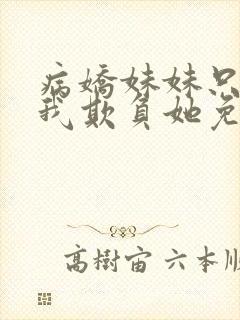 病嬌妹妹只
我欺負她免
高樹宙 六本順